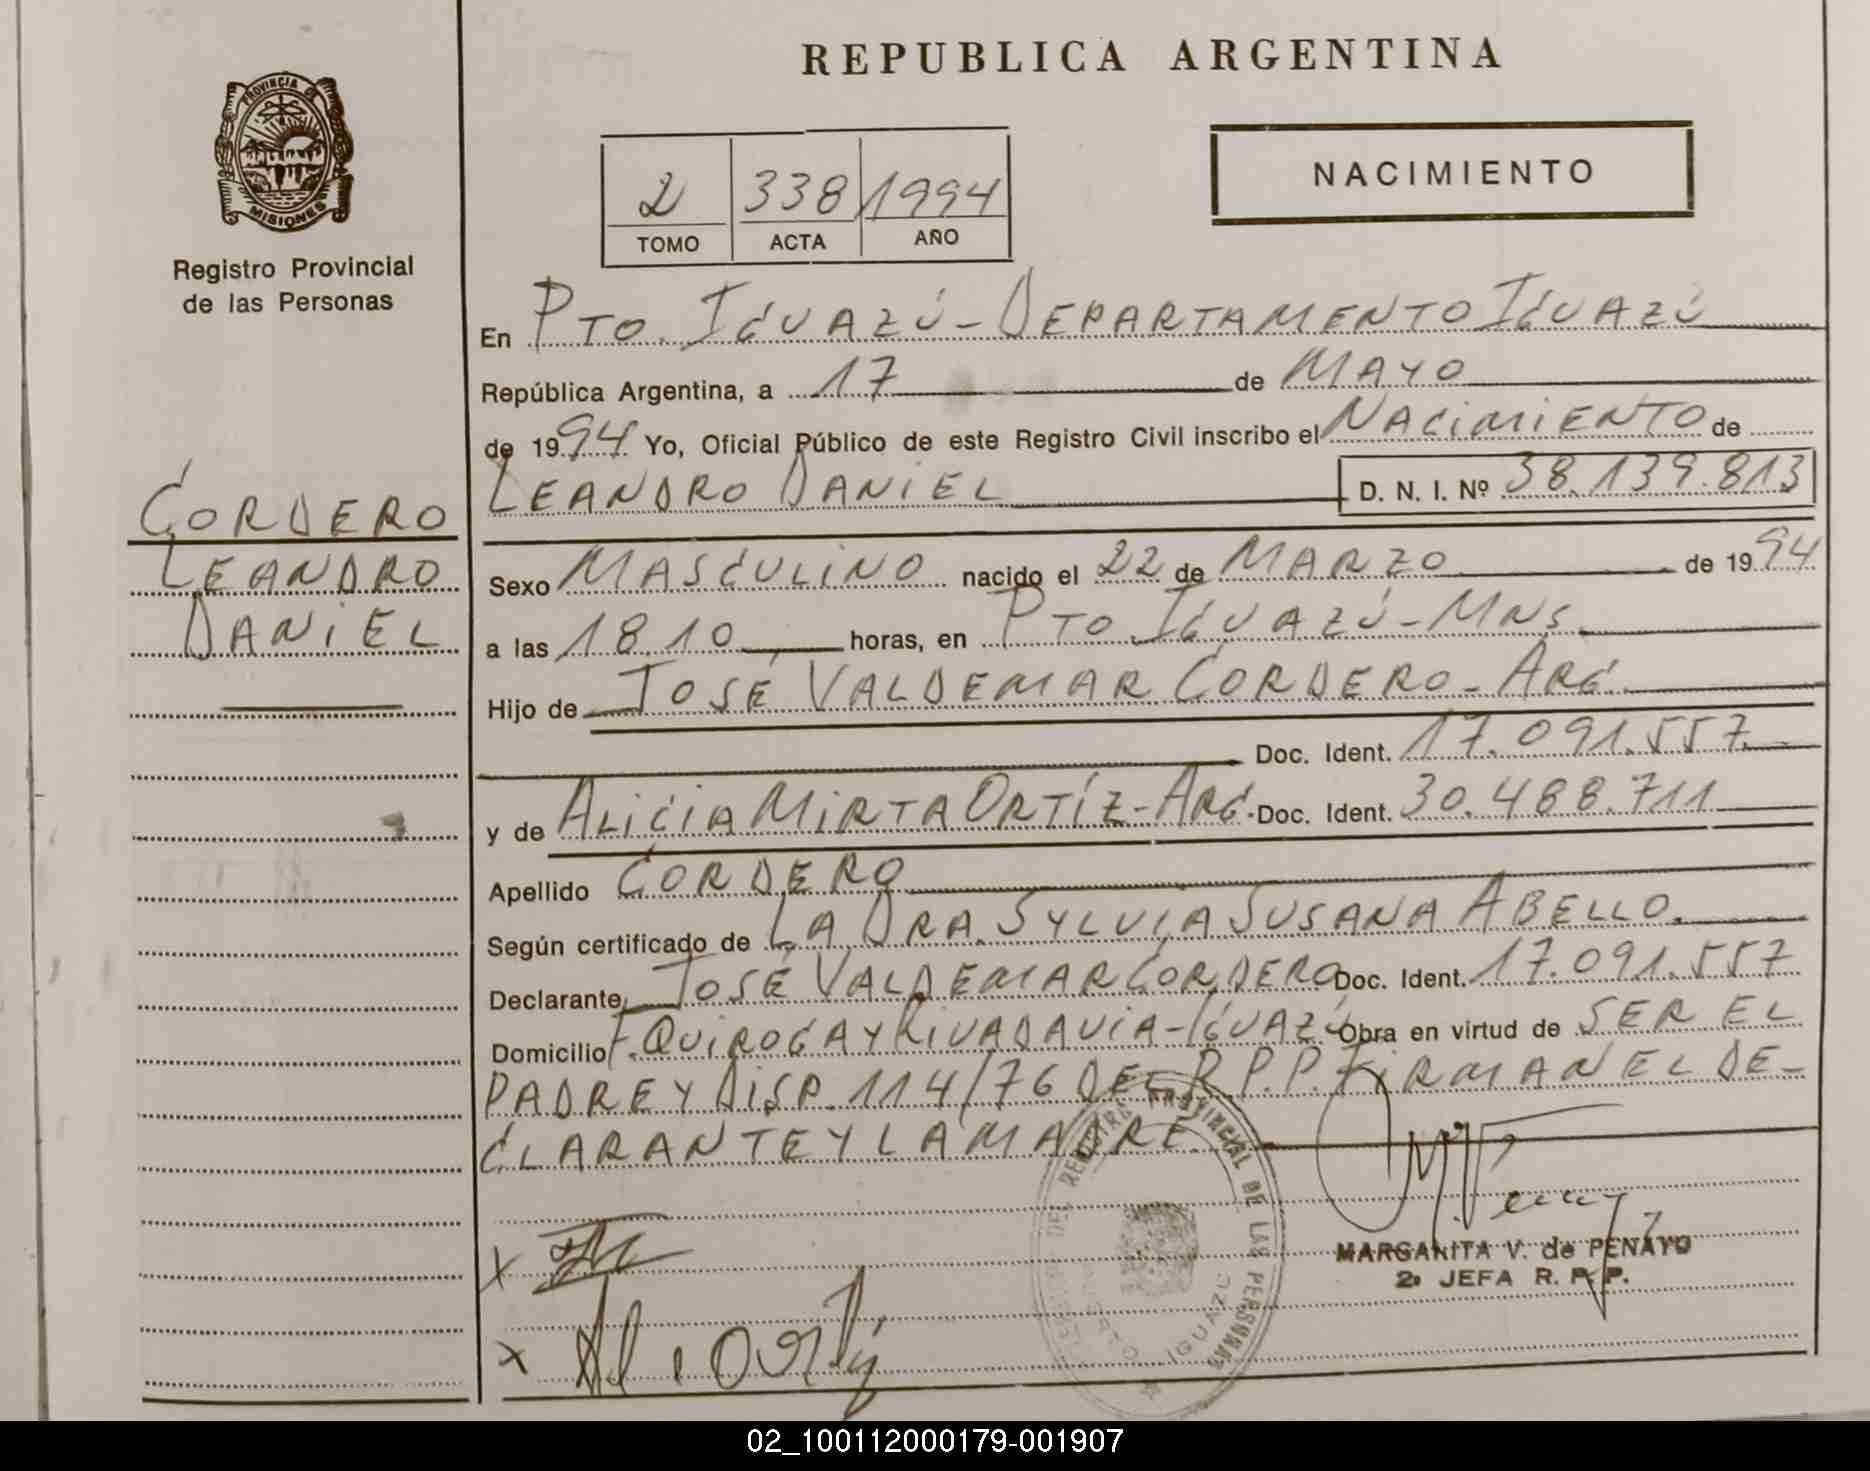 REPUBLICA ARGENTINA
PROVINCIA DE
MISIONES
Registro Provincial
de las Personas
NACIMIENTO
2 338 1994
TOMO ACTA AÑO
En PTO. IGUAZÚ - DEPARTAMENTO IGUAZÚ
República Argentina, a 17 de MAYO
de 1994 Yo, Oficial Público de este Registro Civil inscribo el NACIMIENTO de
LEANDRO DANIEL D. N. I. Nº 38.139.813
CORDERO
LEANDRO
DANIEL
Sexo MASCULINO nacido el 22 de MARZO de 1994
a las 18.10 horas, en PTO. IGUAZÚ - MNS.
Hijo de JOSÉ VALDEMAR CORDERO - ARG.
Doc. Ident. 17.091.557
y de ALICIA MIRTA ORTÍZ - ARG. Doc. Ident. 30.488.711
Apellido CORDERO
Según certificado de LA DRA. SYLVIA SUSANA ABELLO.
Declarante JOSÉ VALDEMAR CORDERO Doc. Ident. 17.091.557
Domicilio F. QUIROGA Y RIVADAVIA - IGUAZÚ Obra en virtud de SER EL
PADRE Y DISP. 114/76 DEL R.P.P. FIRMAN EL DE-
CLARANTE Y LA MADRE.
REGISTRO PROVINCIAL DE LAS PERSONAS
IGUAZU
X
MARGARITA V. de PENAYO
2º JEFA R. P. P.
X
02_100112000179-001907